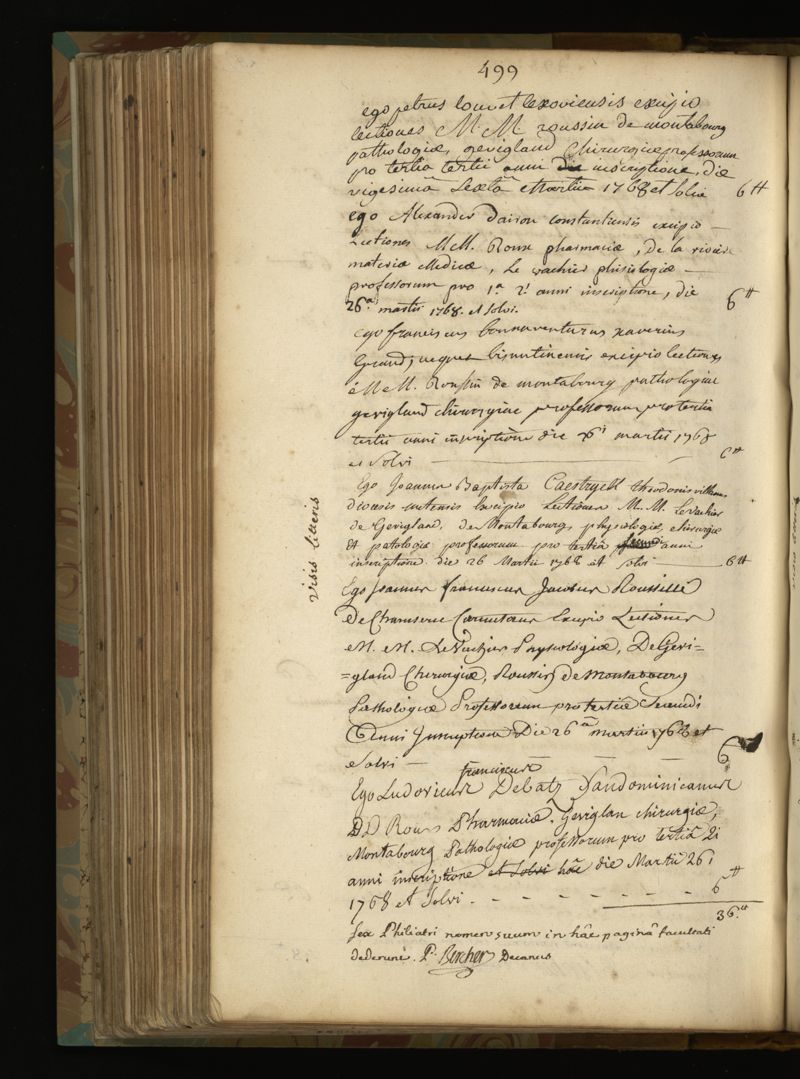 499
ego petrus louvet lexoviensis excipio
lectiones M. M. roussin de montabourg
pathologiæ, gevigland Chirurgiæ professorum
pro tertia tertii anni inscriptione, die
vigesimâ sextâ Martii 1768 et solvi 6 ₶
ego Alexander Daison constantiensis excipio —
Lectiones MM. Roux pharmaciæ, De la riviere
materiæ Medicæ, Le vacher phisiologiæ —
professorum pro 1.ª 2.i anni inscriptione, die
26.ª martii 1768. et solvi. 6 ₶
Ego franciscus bonnaventuras xaverius
bisuntinensis excipio lectiones
MM. Roussin de montabourg pathologiæ
gevigland chirurgiæ professorum pro tertia
tertii anni inscriptione die 26 martii 1768
et solvi 6 ₶
Ego Joannes Baptista Caestryck theodonisvillanus
diocesis metensis Excipio Lectiones M. M. Levacher
de Gevigland, de Montabourg, physiologiæ, chirurgiæ
Et patologiæ professorum pro tertiâ secundi anni
inscriptione die 26 Martii 1768 et solvi — 6 ₶
Visis litteris
Ego Joannes franciscus Jacobus Roussille
De Chamseru Carnutæus Excipio Lectiones
M. M. LeVacher Physiologiæ, DeGevi=
=gland Chirurgiæ, Roussin de Montabourg
Pathologiæ Professorum pro tertiâ Secundi
Anni Inscriptione Die 26ª martii 1768 et
Solvi — — — 6
franciscus
Ego Ludovicus Debatz Sandominicanus
D D Roux Pharmaciæ, Geviglan chirurgiæ,
Montabourg Pathologiæ professorum pro tertiâ 2i
anni inscriptione et solvi hâc die Martii 26i
1768 et solvi - - - - - - - 6 ₶
36.₶
Sex Philiatri nomen suum in hâc paginâ facultati
dederunt. P. Bercher Decanus